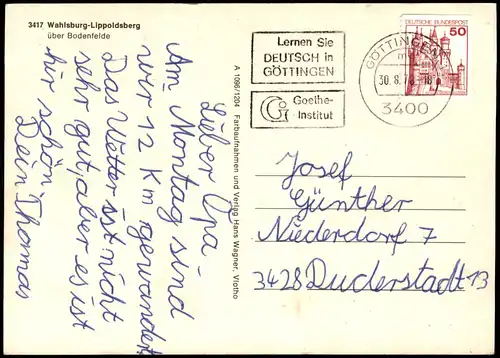 3417 Wahlsburg-Lippoldsberg
über Bodenfelde
Lieber Opa
Am Montag sind
wir 12 Km gewandert
Das Wetter ist nicht
sehr gut, aber es ist
hir schön.
Dein Thomas
A 1096/1204 Farbaufnahmen und Verlag Hans Wagner, Vlotho
Lernen Sie
DEUTSCH in
GÖTTINGEN
Goethe-
Institut
GÖTTINGEN
30.8.78-18
3400
DEUTSCHE BUNDESPOST
50
Josef
Günther
Niederdorf 7
3428 Duderstadt 13